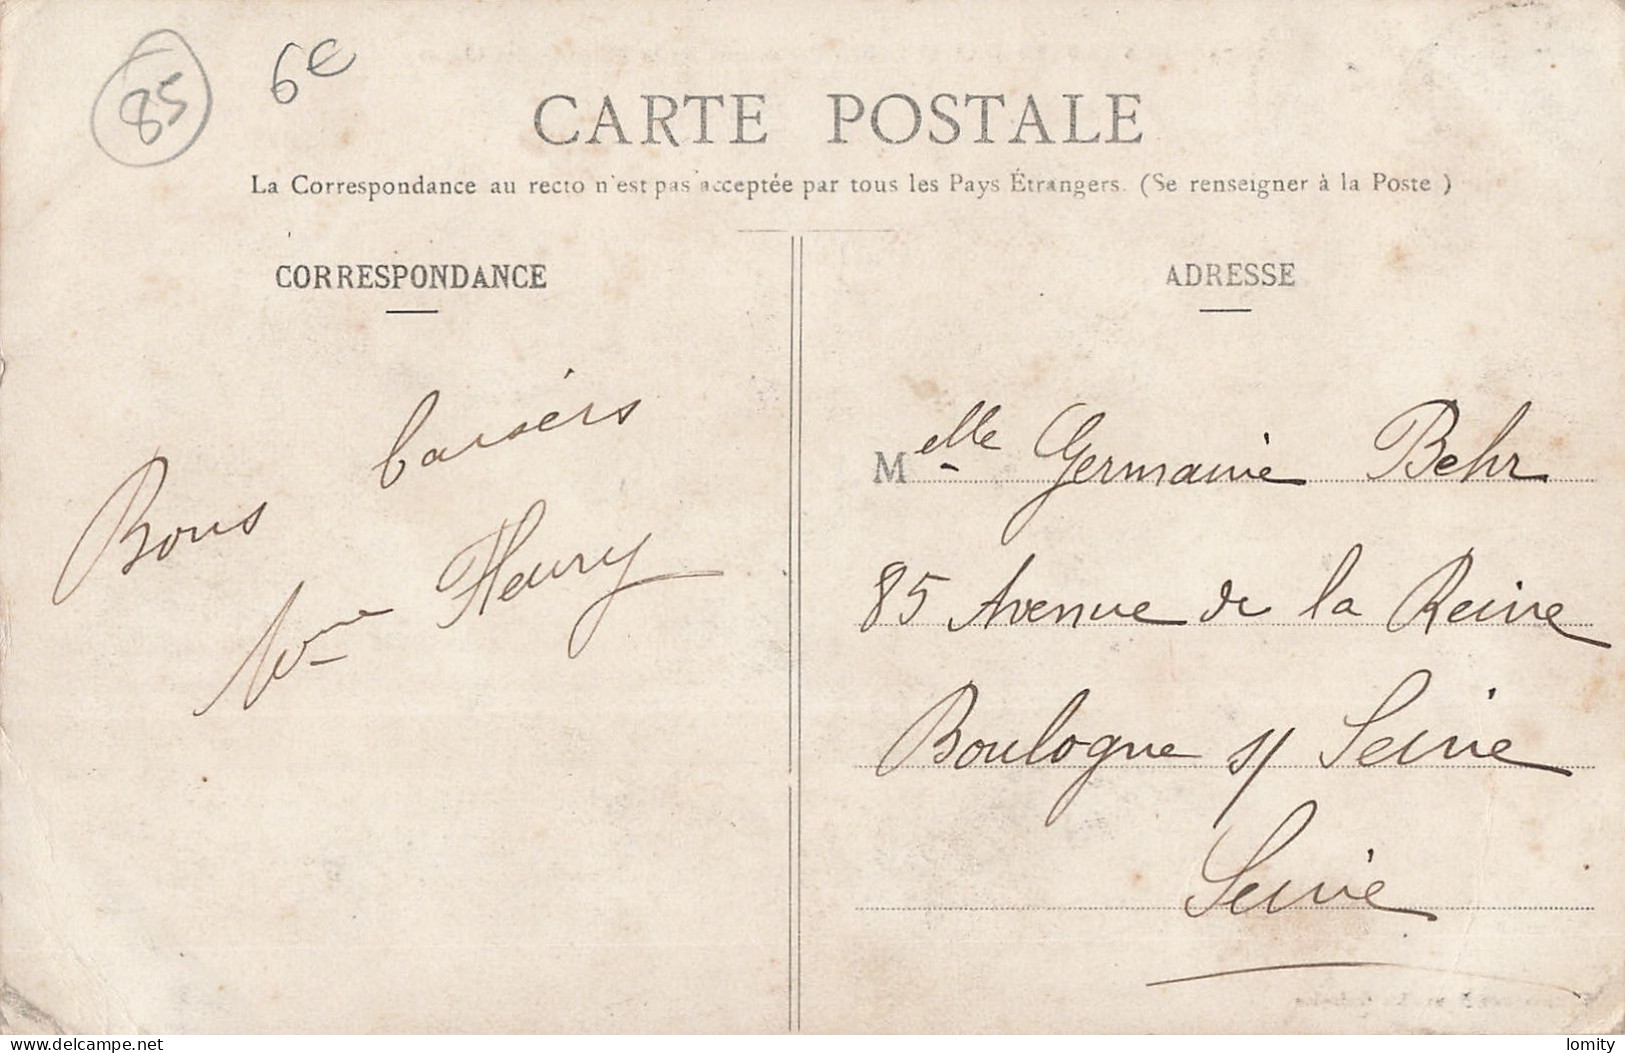 85 6€
CARTE POSTALE
La Correspondance au recto n'est pas acceptée par tous les Pays Étrangers. (Se renseigner à la Poste )
CORRESPONDANCE
Bons baisers
Mme Fleury
ADRESSE
Melle Germaine Behr
85 Avenue de la Reine
Boulogne s/ Seine
Seine
www.delcampe.net
lomity